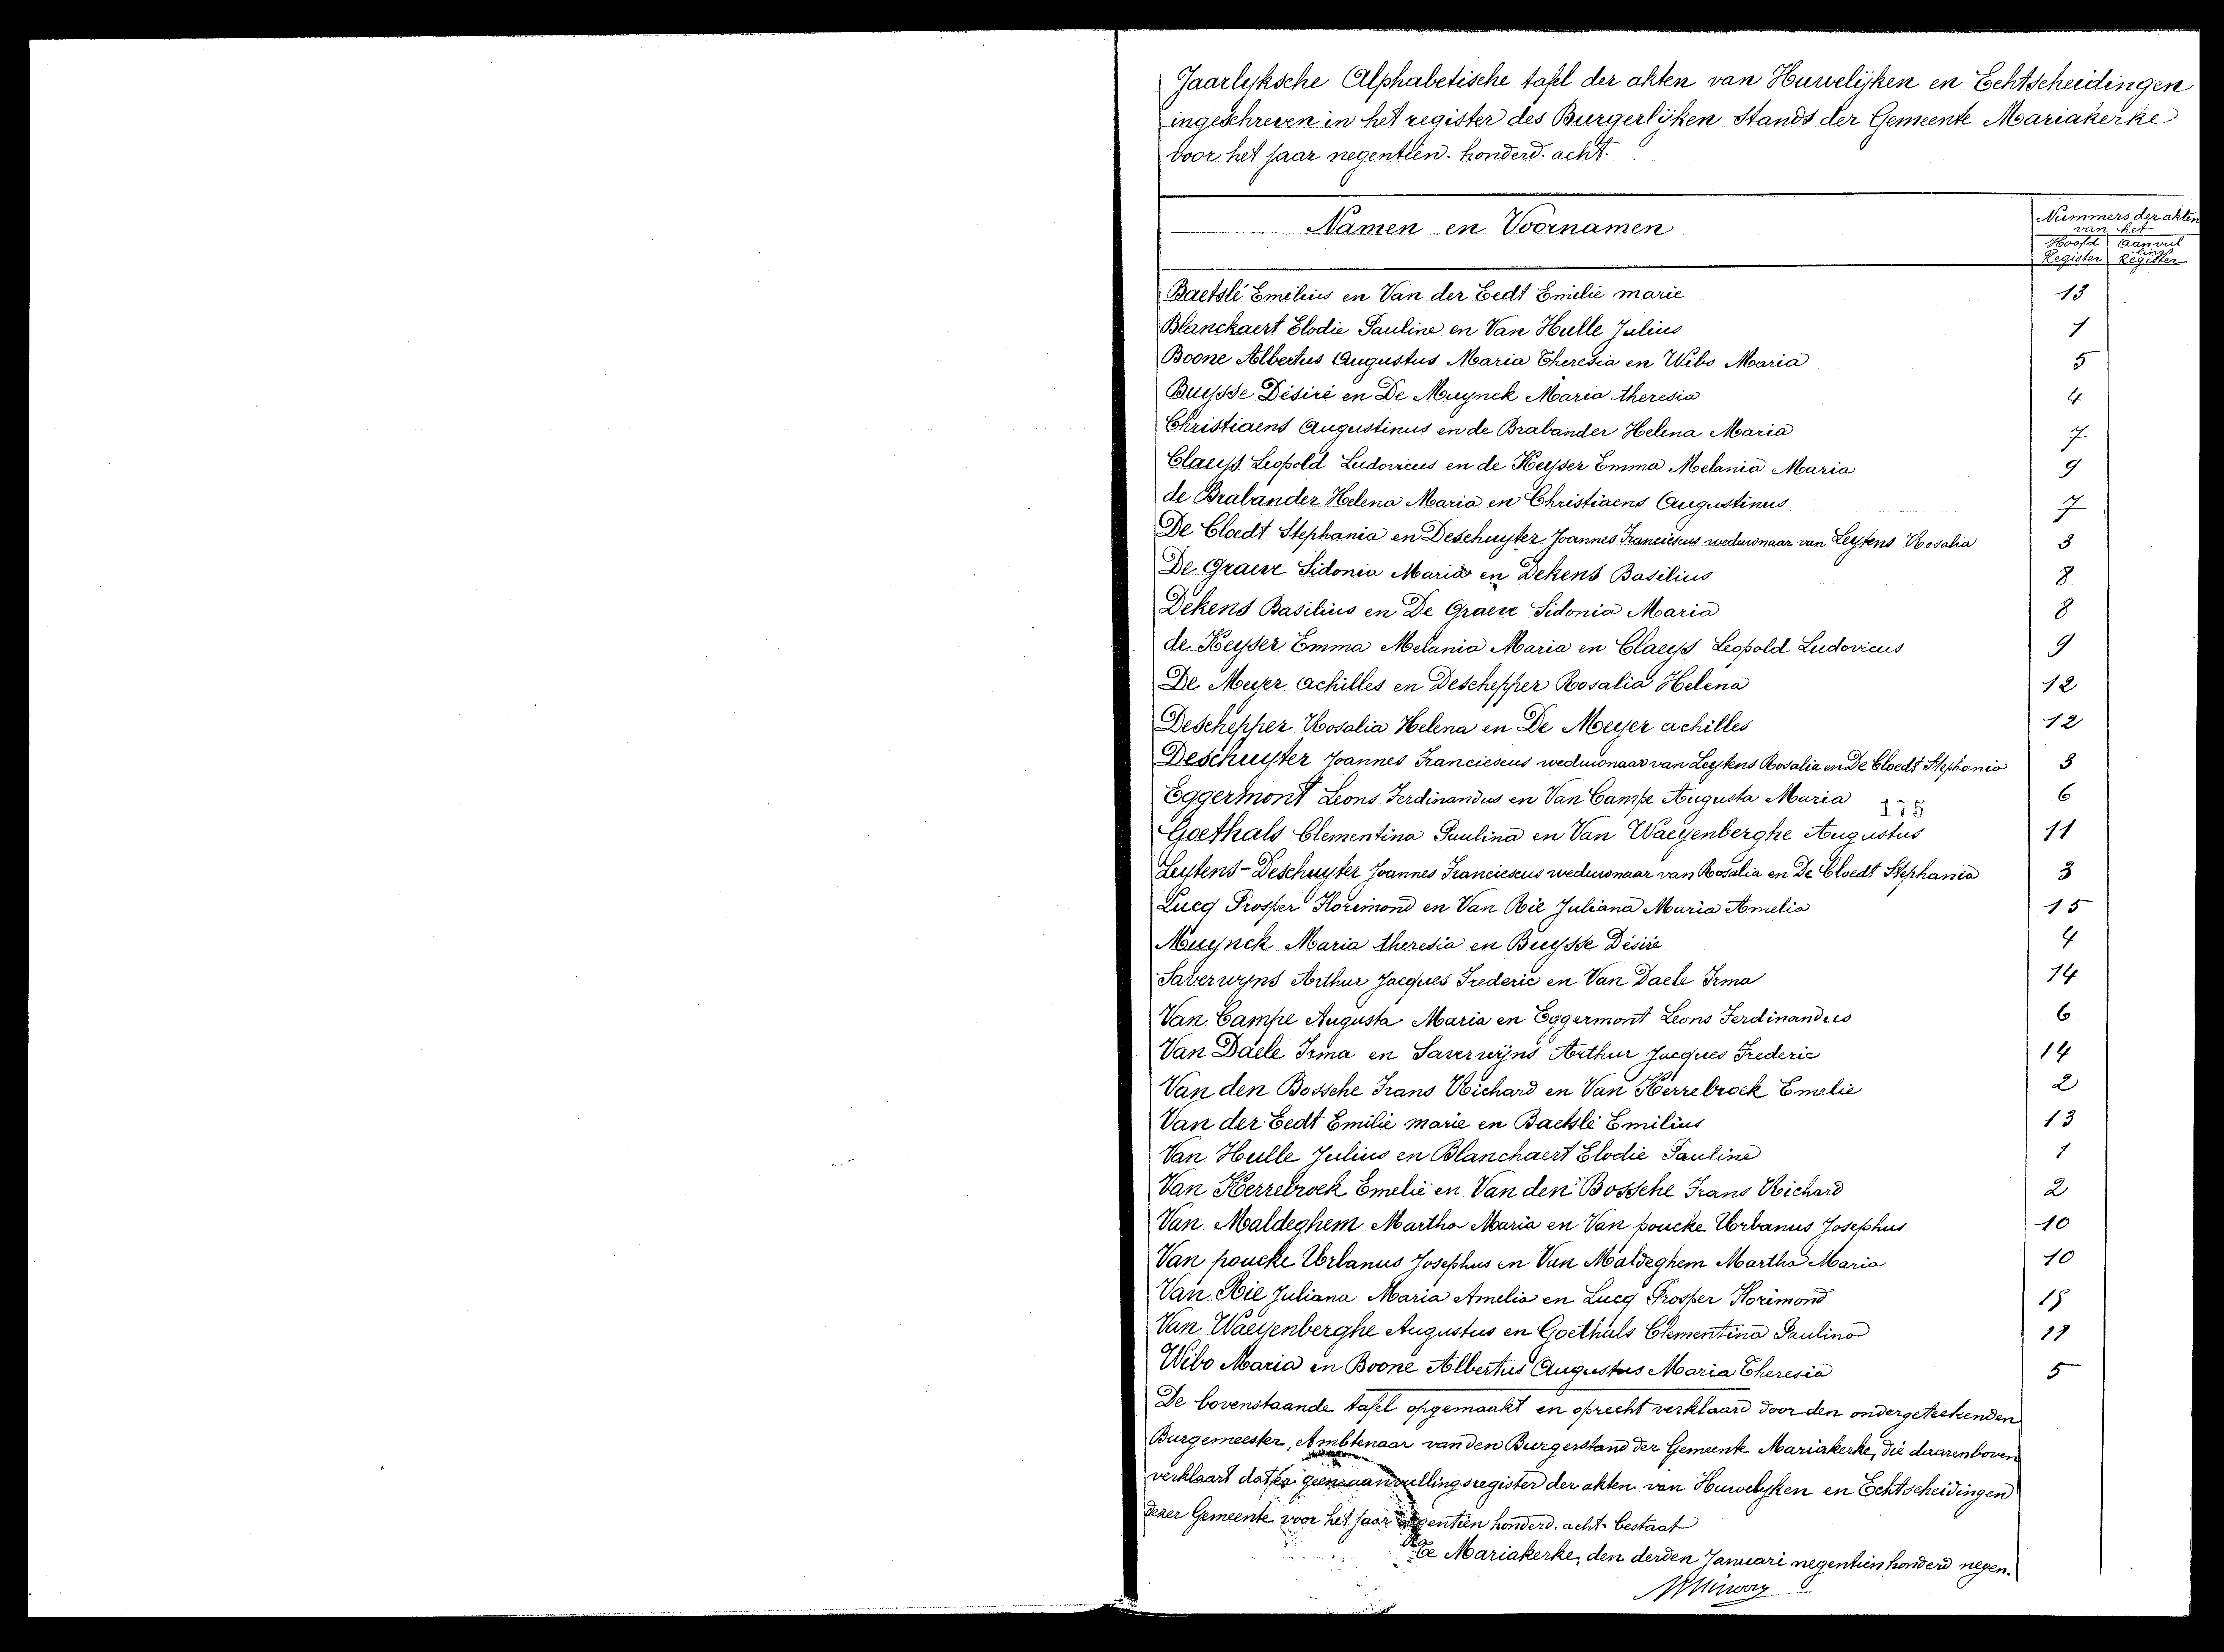 Jaarlijksche Alphabetische tafel der akten van Huwelijken en Echtscheidingen
ingeschreven in het register des Burgerlijken Stands der Gemeente Mariakerke
voor het jaar negentien-honderd-acht.
Namen en Voornamen
Nummers der akten
van het
Hoofd Register
Aanvullings Register
Baetslé Emilius en Van der Eedt Emilie marie 13
Blanckaert Elodie Pauline en Van Hulle Julius 1
Boone Albertus Augustus Maria Theresia en Wibo Maria 5
Buysse Désiré en De Muynck Maria theresia 4
Christiaens Augustinus en de Brabander Helena Maria 7
Claeys Leopold Ludovicus en de Keyser Emma Melania Maria 9
de Brabander Helena Maria en Christiaens Augustinus 7
De Cloedt Stephania en Deschuyter Joannes Franciescus weduwnaar van Leytens Rosalia 3
De Graeve Sidonia Maria en Dekens Basilius 8
Dekens Basilius en De Graeve Sidonia Maria 8
de Keyser Emma Melania Maria en Claeys Leopold Ludovicus 9
De Meyer achilles en Deschepper Rosalia Helena 12
Deschepper Rosalia Helena en De Meyer achilles 12
Deschuyter Joannes Franciescus weduwnaar van Leytens Rosalia en De Cloedt Stephania 3
Eggermont Leons Ferdinandus en Van Campe Augusta Maria 6
175
Goethals Clementina Paulina en Van Waeyenberghe Augustus 11
Leytens-Deschuyter Joannes Franciescus weduwnaar van Rosalia en De Cloedt Stephania 3
Lucq Prosper Florimond en Van Rie Juliana Maria Amelia 15
Muynck Maria theresia en Buysse Désiré 4
Saverwyns Arthur Jacques Frederic en Van Daele Irma 14
Van Campe Augusta Maria en Eggermont Leons Ferdinandus 6
Van Daele Irma en Saverwyns Arthur Jacques Frederic 14
Van den Bossche Frans Richard en Van Kerrebroek Emelie 2
Van der Eedt Emilie marie en Baetslé Emilius 13
Van Hulle Julius en Blanchaert Elodie Pauline 1
Van Kerrebroek Emelie en Van den Bossche Frans Richard 2
Van Maldeghem Martha Maria en Van poucke Urbanus Josephus 10
Van poucke Urbanus Josephus en Van Maldeghem Martha Maria 10
Van Rie Juliana Maria Amelia en Lucq Prosper Florimond 15
Van Waeyenberghe Augustus en Goethals Clementina Paulina 11
Wibo Maria en Boone Albertus Augustus Maria Theresia 5
De bovenstaande tafel opgemaakt en oprecht verklaard door den ondergeteekenden
Burgemeester, Ambtenaar van den Burgerstand der Gemeente Mariakerke, die daarenboven
verklaart dat er geen aanvullingsregister der akten van Huwelyken en Echtscheidingen
dezer Gemeente voor het jaar negentien honderd-acht bestaat
Te Mariakerke, den derden Januari negentien honderd negen.